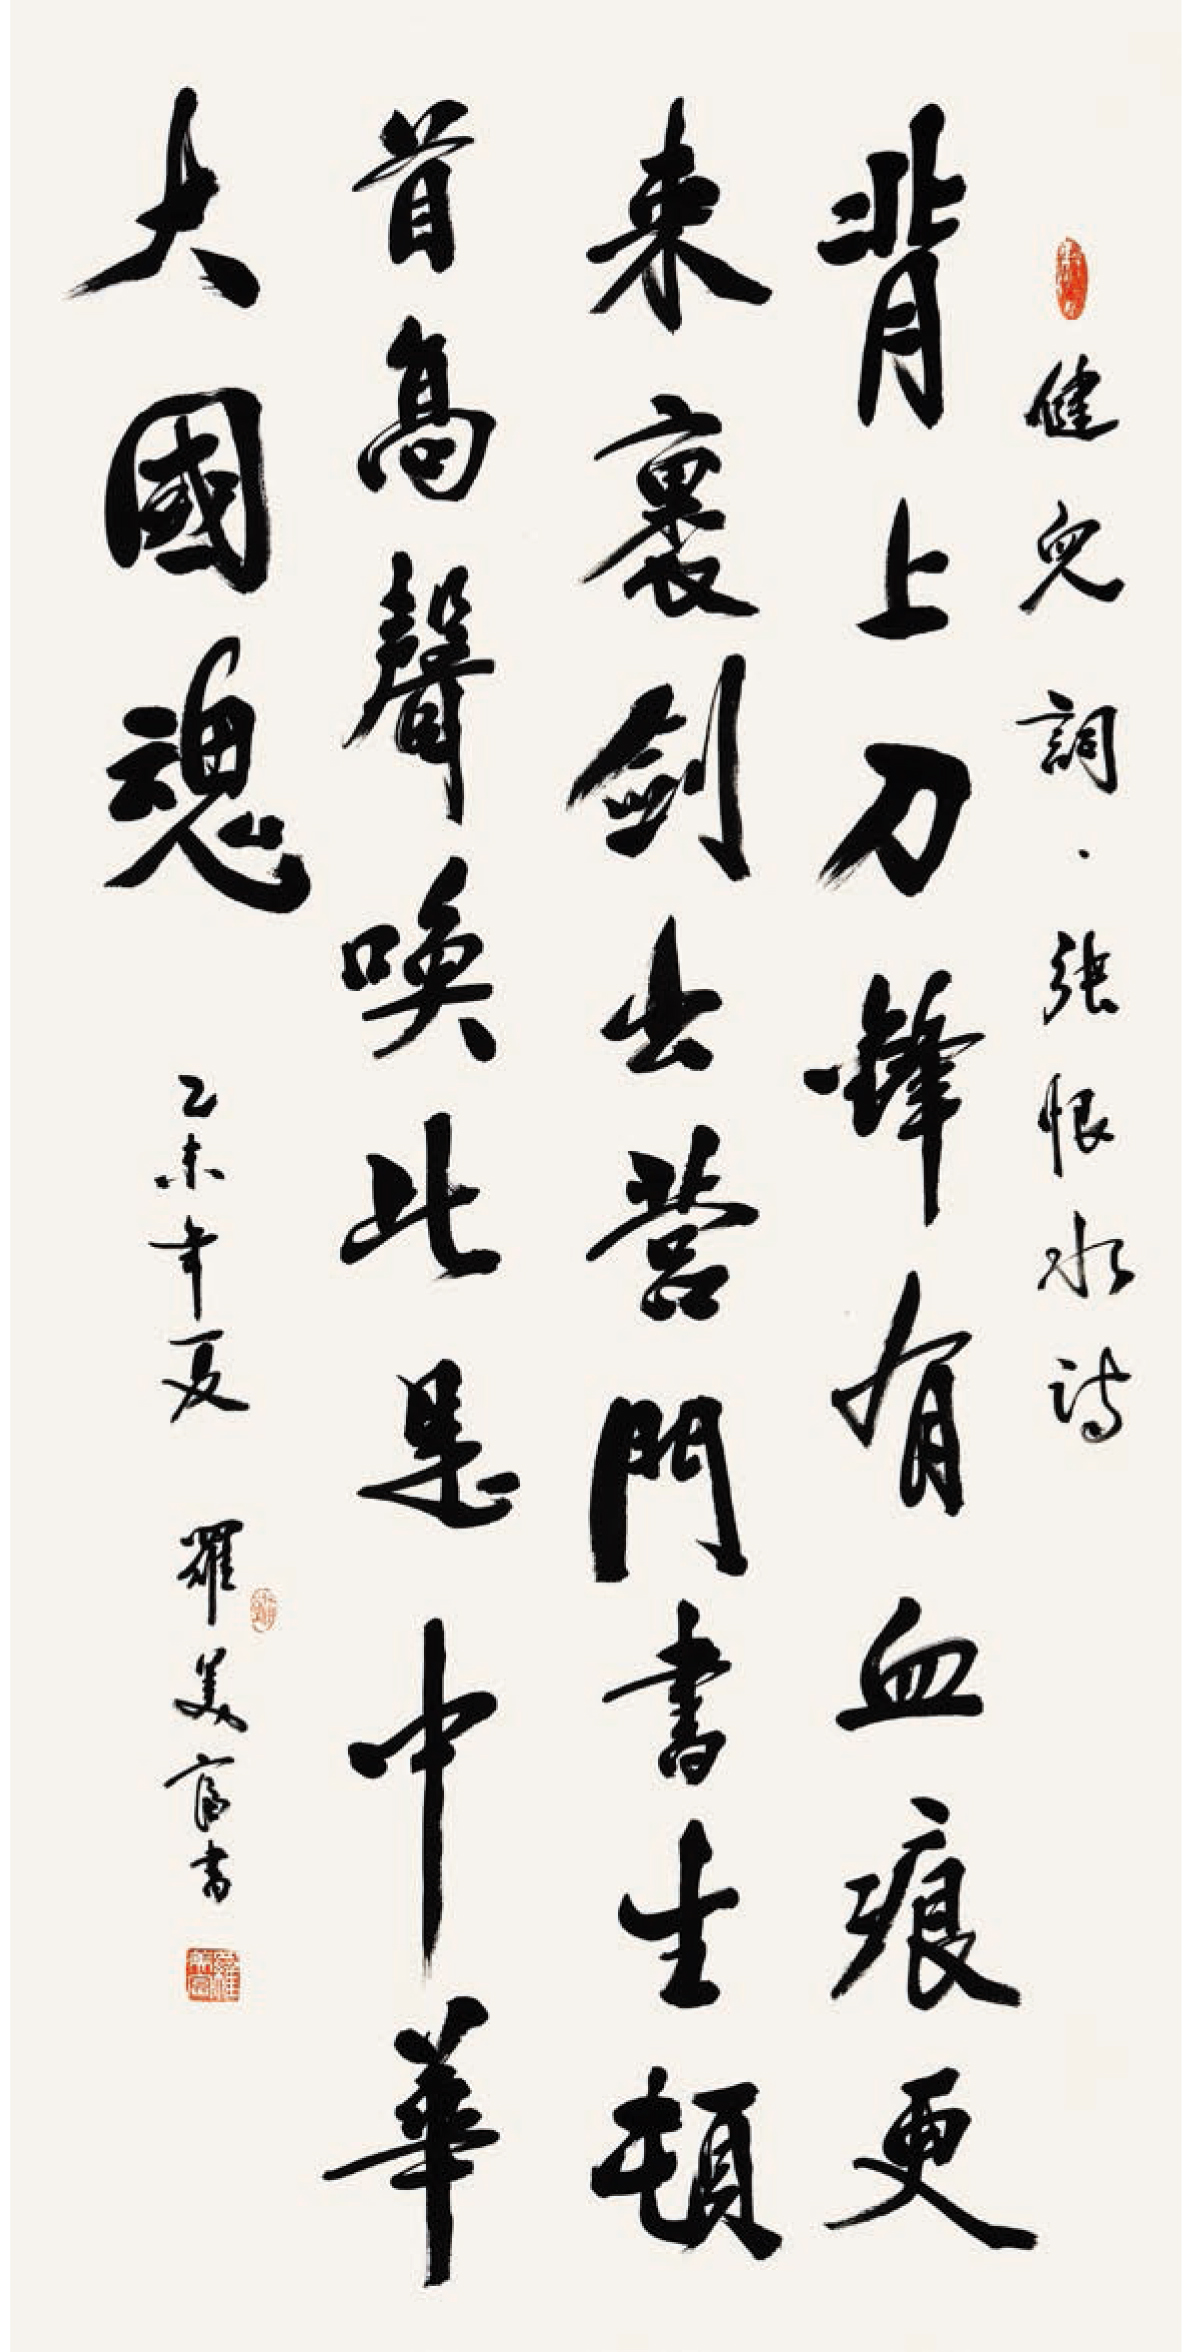 健兒詞·張恨水詩
背上刀鋒有血痕更
來裹劍出營門書生頓
首高聲喚此是中華
大國魂
乙未年夏
羅美富書